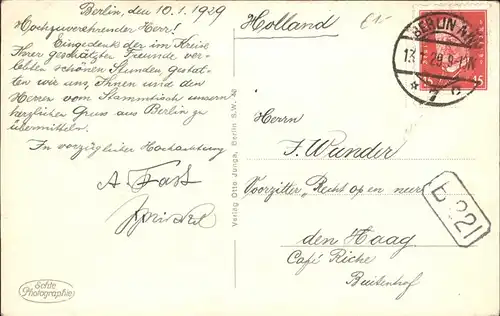 Berlin, den 10.1.1929
Hochzuverehrender Herr!
Eingedenk der im Kreise
Ihrer geschätzten Freunde ver-
lebten schönen Stunden, gestat-
ten wir uns, Ihnen und den
Herren vom Stammtisch unsern
herzlichen Gruss aus Berlin zu
übermitteln.
In vorzüglicher Hochachtung
A. Fast
Echte
Photographie
Verlag Otto Junga, Berlin S.W.
Holland
BERLIN
13.1.29.9-10V.
* 7 c *
15
Herrn
J. Wunder
Voorzitter „Recht op en neer
den Haag
Café Riche
Buitenhof
b 221